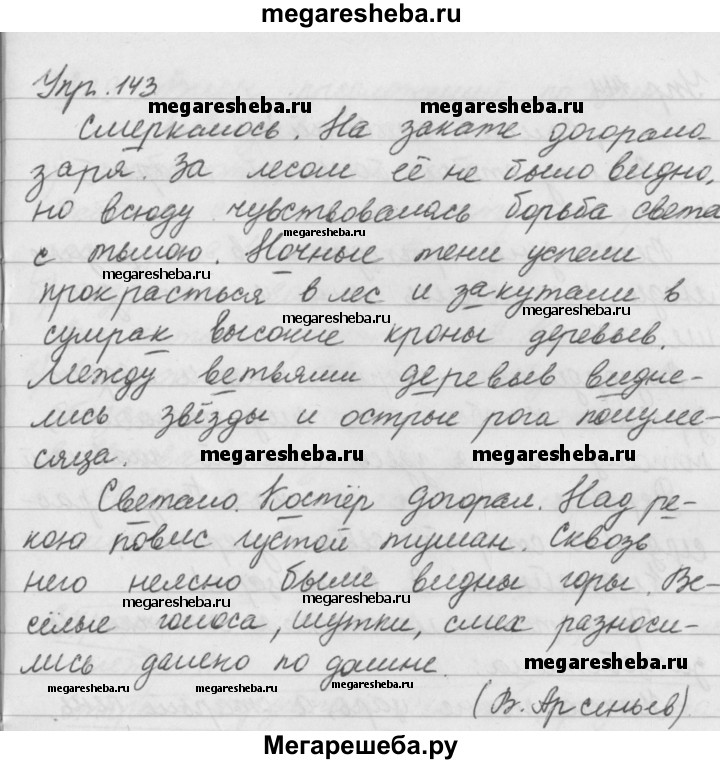 megaresheba.ru
Упр. 143
megaresheba.ru megaresheba.ru
Смеркалось. На закате догорала
заря. За лесом её не было видно,
но всюду чувствовалась борьба света
megaresheba.ru
с тьмою. Ночные тени успели
megaresheba.ru
прокрасться в лес и закутали в
megaresheba.ru
сумрак высокие кроны деревьев.
Между ветвями деревьев видне-
лись звёзды и острые рога полуме-
сяца.
megaresheba.ru megaresheba.ru
Светало. Костёр догорал. Над ре-
кою повис густой туман. Сквозь
него неясно были видны горы. Ве-
megaresheba.ru megaresheba.ru
сёлые голоса, шутки, смех разноси-
лись далеко по долине.
megaresheba.ru
megaresheba.ru megaresheba.ru megaresheba.ru
(В. Арсеньев)
Мегарешеба.ру